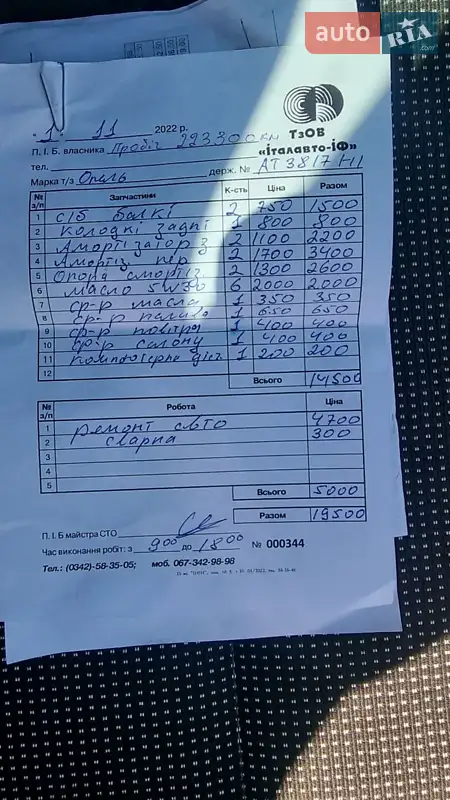 auto RIA .com
1. 11 2022 р.
ТзОВ
«італавто-ІФ»
П. І. Б. власника Пробіг 223300 км
тел. держ. № АТ3817НІ
Марка т/з Опель
№ з/п Запчастини К-сть Ціна Разом
1 с/б балкі 2 750 1500
2 колодкі задні 1 800 800
3 Амортізатор з 2 1100 2200
4 Амортіз пер 2 1700 3400
5 Опора амортіз 2 1300 2600
6 масло 5W30 6 2000 2000
7 ф-р масла 1 350 350
8 ф-р палива 1 650 650
9 ф-р повітря 1 400 400
10 ф-р салону 1 400 400
11 компютерна діаг 1 200 200
12
Всього 14500
№ з/п Робота Ціна
1 ремонт авто 4700
2 сварка 300
3
4
5
Всього 5000
Разом 19500
П. І. Б майстра СТО
Час виконання робіт: з 9 00 до 18 00 № 000344
Тел.: (0342)-58-35-05; моб. 067-342-98-98